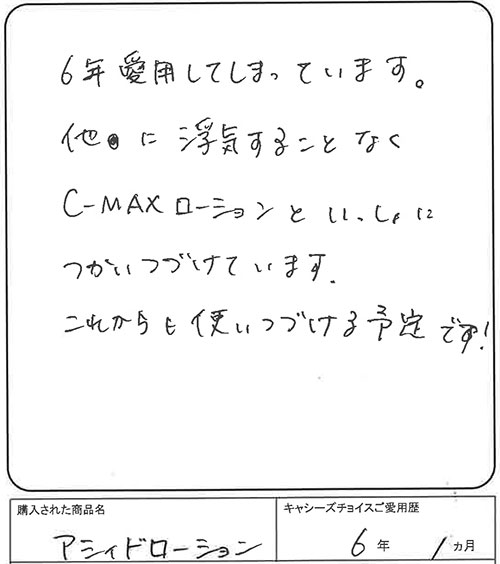 6年愛用してしまっています。
他に浮気することなく
C-MAXローションといっしょに
つかいつづけています.
これからも使いつづける予定です!
購入された商品名
キャシーズチョイスご愛用歴
アシィドローション
6年 1ヵ月